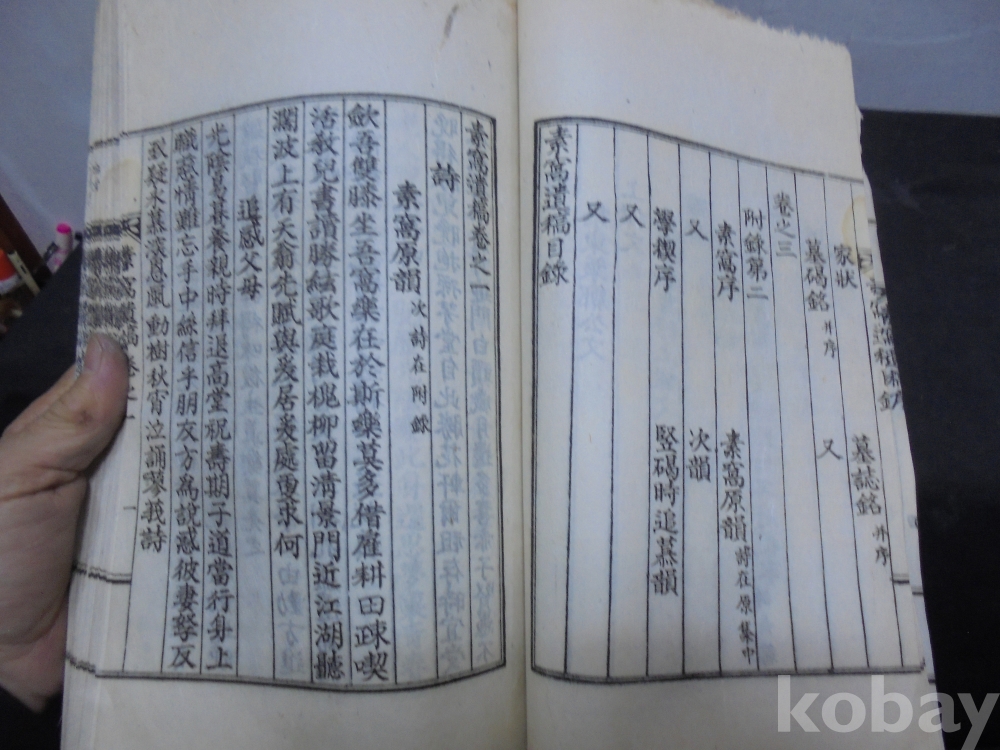 墓誌銘 并序
家狀
又
墓碣銘 并序
卷之三
附錄第二
素窩序
素窩原韻 詩在原集中
又
次韻
學稧序
竪碣時追慕韻
又
又
素窩遺稿目錄
素窩遺稿卷之一
詩
素窩原韻 次詩在附錄
斂吾雙膝坐吾窩樂在於斯樂莫多借雇耕田踈喫
活教兒書讀勝絃歌庭栽槐柳留淸景門近江湖聽
濶波上有天翁先賦與爰居爰處更求何
追感父母
光陰易暮養親時拜退高堂祝壽期子道當行身上
職慈情難忘手中絲信半朋友方爲說惑彼妻孥反
致疑永慕深恩風動樹秋宵泣誦蓼莪詩
素窩遺稿卷之一
kobay